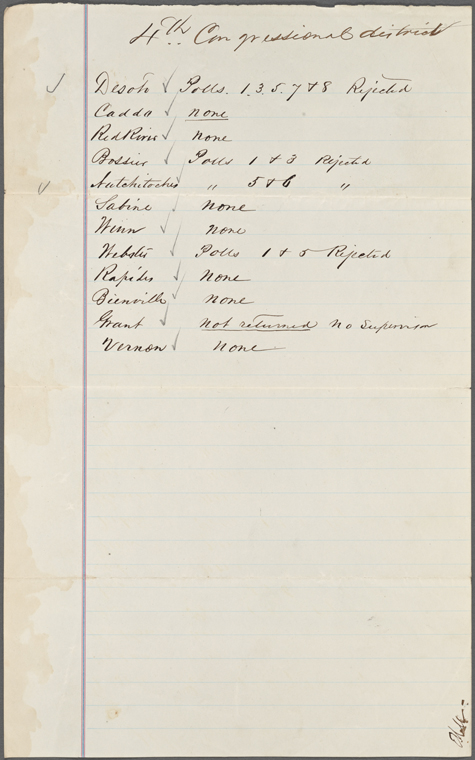 4th Congressional district
Desoto Polls. 1. 3. 5. 7 & 8 Rejected
Caddo none
Red River none
Bossier Polls 1 & 3 Rejected
Natchitoches " 5 & 6 "
Sabine none
Winn none
Webster Polls 1 & 5 Rejected
Rapides none
Bienville none
Grant not returned no Supervisor
Vernon none